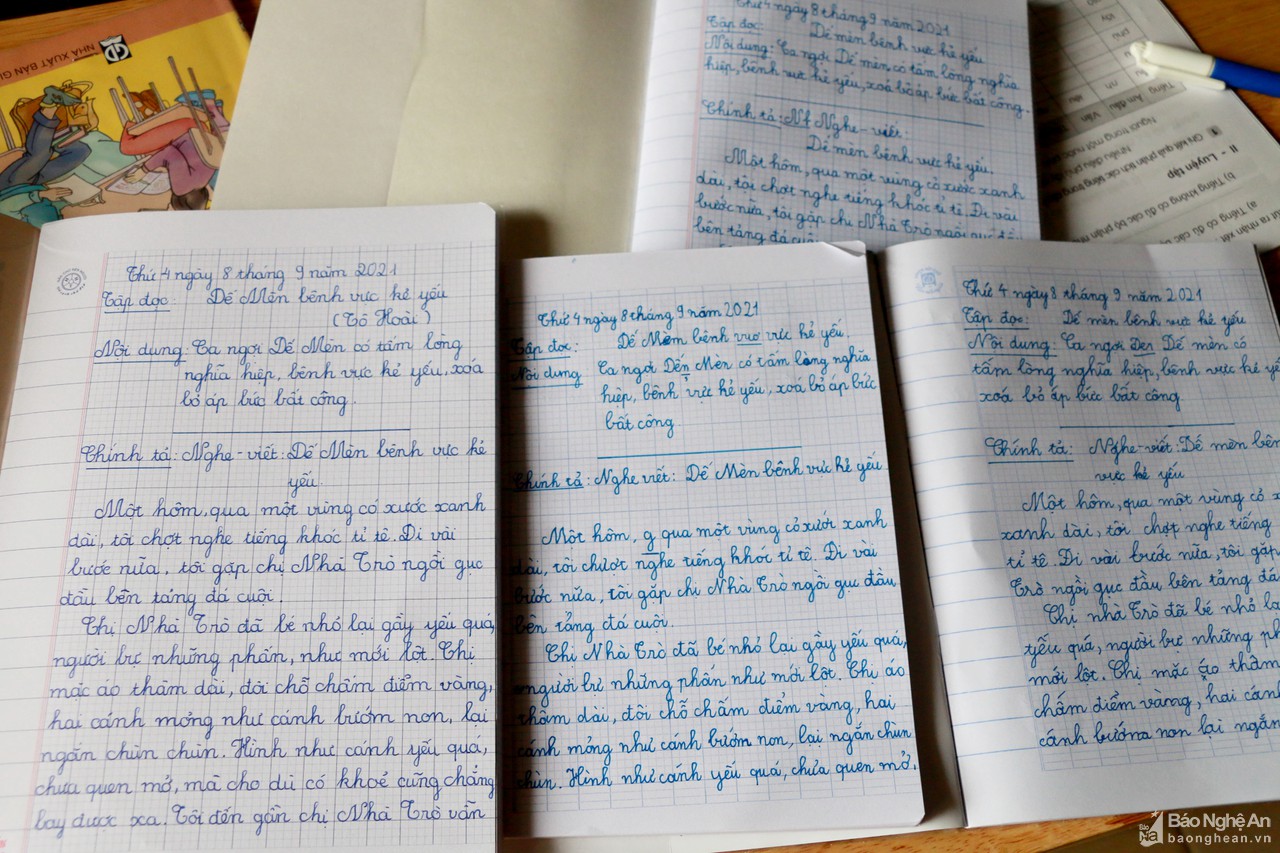 NHÀ XUẤT BẢN GI
Thứ 4 ngày 8 tháng 9 năm 2021
Tập đọc: Dế mèn bênh vực kẻ yếu
Nội dung: Ca ngợi Dế mèn có tấm lòng nghĩa
hiệp, bênh vực kẻ yếu, xoá bỏ áp bức bất công.
Chính tả: Nghe - viết:
Dế mèn bênh vực kẻ yếu.
Một hôm, qua một vùng cỏ xước xanh
dài, tôi chợt nghe tiếng khóc tỉ tê. Đi vài
bước nữa, tôi gặp chị Nhà Trò ngồi gục
bên tảng đá cuội
II - Luyện tập
Thứ 4 ngày 8 tháng 9 năm 2021
Tập đọc: Dế Mèn bênh vực kẻ yếu
(Tô Hoài)
Nội dung: Ca ngợi Dế Mèn có tấm lòng
nghĩa hiệp, bênh vực kẻ yếu, xoá
bỏ áp bức bất công.
Chính tả: Nghe - viết: Dế Mèn bênh vực kẻ
yếu.
Một hôm, qua một vùng cỏ xước xanh
dài, tôi chợt nghe tiếng khóc tỉ tê. Đi vài
bước nữa, tôi gặp chị Nhà Trò ngồi gục
đầu bên tảng đá cuội.
Chị Nhà Trò đã bé nhỏ lại gầy yếu quá,
người bự những phấn, như mới lột. Chị
mặc áo thâm dài, đôi chỗ chấm điểm vàng,
hai cánh mỏng như cánh bướm non, lại
ngắn chùn chùn. Hình như cánh yếu quá,
chưa quen mở, mà cho dù có khoẻ cũng chẳng
bay được xa. Tôi đến gần chị Nhà Trò vẫn
Thứ 4 ngày 8 tháng 9 năm 2021
Tập đọc: Dế Mèm bênh vươ vực kẻ yếu.
Nội dung Ca ngợi Dến Mèn có tấm lòng nghĩa
hiệp, bênh vực kẻ yếu, xoá bỏ áp bức
bất công
Chính tả: Nghe viết: Dế Mèn bênh vực kẻ yếu
Một hôm, g qua một vùng cỏ xướt xanh
dài, tôi chượt nghe tiếng khót tỉ tê. Đi vài
bước nữa, tôi gặp chị Nhà Trò ngồi gục đầu
bên tảng đá cuội.
Chị Nhà Trò đã bé nhỏ lại gầy yếu quá,
người bự những phấn như mới lột. Chị áo
thâm dài, đôi chỗ chấm điểm vàng, hai
cánh mỏng như cánh bướm non, lại ngắn chùn
chùn. Hình như cánh yếu quá, chưa quen mở.
Thứ 4 ngày 8 tháng 9 năm 2021
Tập đọc: Dế mèn bênh vực kẻ yếu
Nội dung: Ca ngợi Den Dế mèn có
tấm lòng nghĩa hiệp, bênh vực kẻ yế
xoá bỏ áp bức bất công
Chính tả: Nghe - viết: Dế mèn bên
vực kẻ yếu
Một hôm, qua một vùng cỏ x
xanh dài, tôi chợt nghe tiếng
tỉ tê. Đi vài bước nữa, tôi gặp
Trò ngồi gục đầu bên tảng đá
Chị nhà Trò đã bé nhỏ lạ
yếu quá, người bự những ph
mới lột. Chị mặc áo thâm
chấm điểm vàng, hai cánh
cánh bướm non lại ngắn
Báo Nghệ An
baonghean.vn